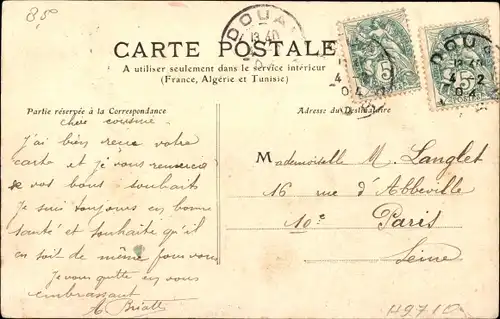 85
DOUAI
13 40
CARTE POSTALE
A utiliser seulement dans le service intérieur
(France, Algérie et Tunisie)
5
DOUAI
13 40
4 - 2
04
5
Partie réservée à la Correspondance
Adresse du Destinataire
chère cousine
J'ai bien reçu votre
carte et je vous remercie
de vos bons souhaits
Je suis toujours en bonne
santé et souhaite qu'il
en soit de même pour vous
Je vous quitte en vous
embrassant
Mademoiselle M. Langlet
16 rue d'Abbeville
10e Paris
Seine